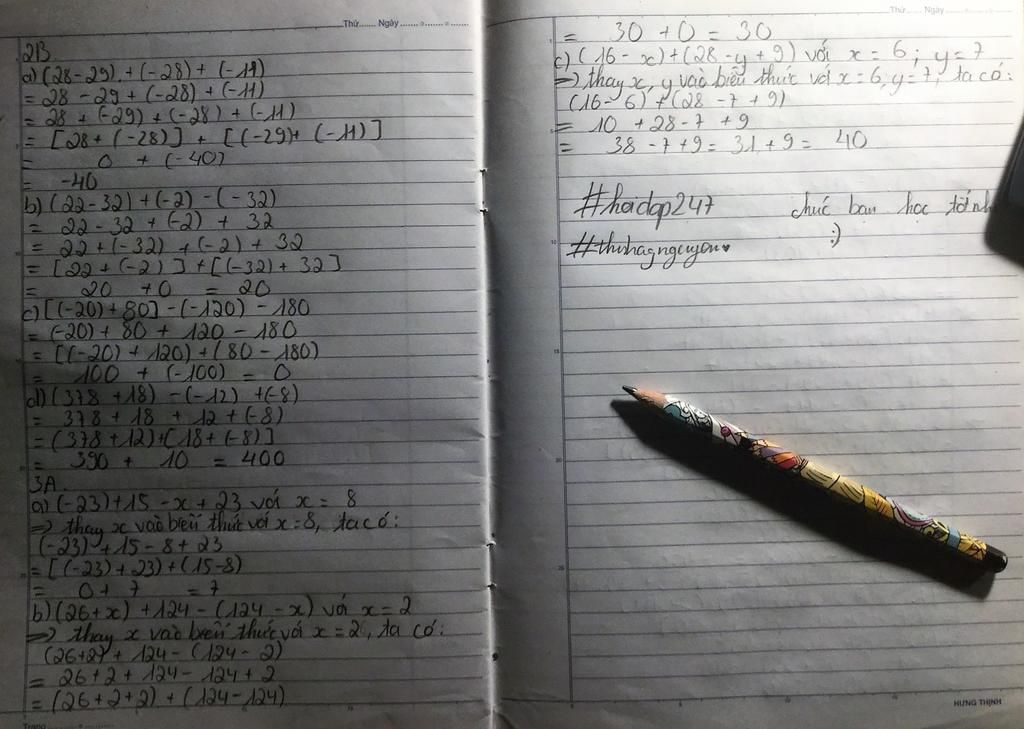 Thứ....... Ngày.......
2B
a) (28-29) + (-28) + (-11)
= 28 - 29 + (-28) + (-11)
= 28 + (-29) + (-28) + (-11)
= [28 + (-28)] + [(-29) + (-11)]
= 0 + (-40)
= -40
b) (22-32) + (-2) - (-32)
= 22 - 32 + (-2) + 32
= 22 + (-32) + (-2) + 32
= [22 + (-2)] + [(-32) + 32]
= 20 + 0 = 20
c) [(-20) + 80] - (-120) - 180
= (-20) + 80 + 120 - 180
= [(-20) + 120) + (80 - 180)
= 100 + (-100) = 0
d) (378 + 18) - (-12) + (-8)
= 378 + 18 + 12 + (-8)
= (378 + 12) + [18 + (-8)]
= 390 + 10 = 400
3A.
a) (-23) + 15 - x + 23 với x = 8
=> thay x vào biểu thức với x = 8, ta có:
(-23) + 15 - 8 + 23
= [(-23) + 23) + (15-8)
= 0 + 7 = 7
b) (26 + x) + 124 - (124 - x) với x = 2
=> thay x vào biểu thức với x = 2, ta có:
(26+2) + 124 - (124 - 2)
= 26 + 2 + 124 - 124 + 2
= (26 + 2 + 2) + (124 - 124)
Trang
Thứ....... Ngày.......
= 30 + 0 = 30
c) (16 - x) + (28 - y + 9) với x = 6 ; y = 7
=> thay x, y vào biểu thức với x = 6, y = 7, ta có:
(16 - 6) + (28 - 7 + 9)
= 10 + 28 - 7 + 9
= 38 - 7 + 9 = 31 + 9 = 40
#hoidap247 chúc bạn học tốt nh
#thuhagnguyen♥ :)
HƯNG THỊNH